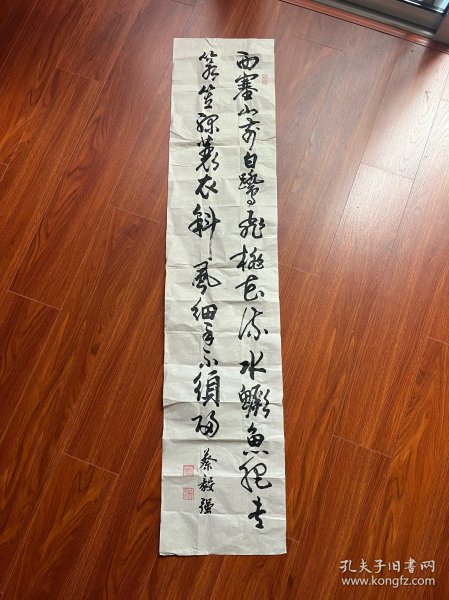 西塞山前白鹭飞桃花流水鳜鱼肥青
箬笠绿蓑衣斜风细雨不须归
蔡毅强
孔夫子旧书网
www.kongfz.com